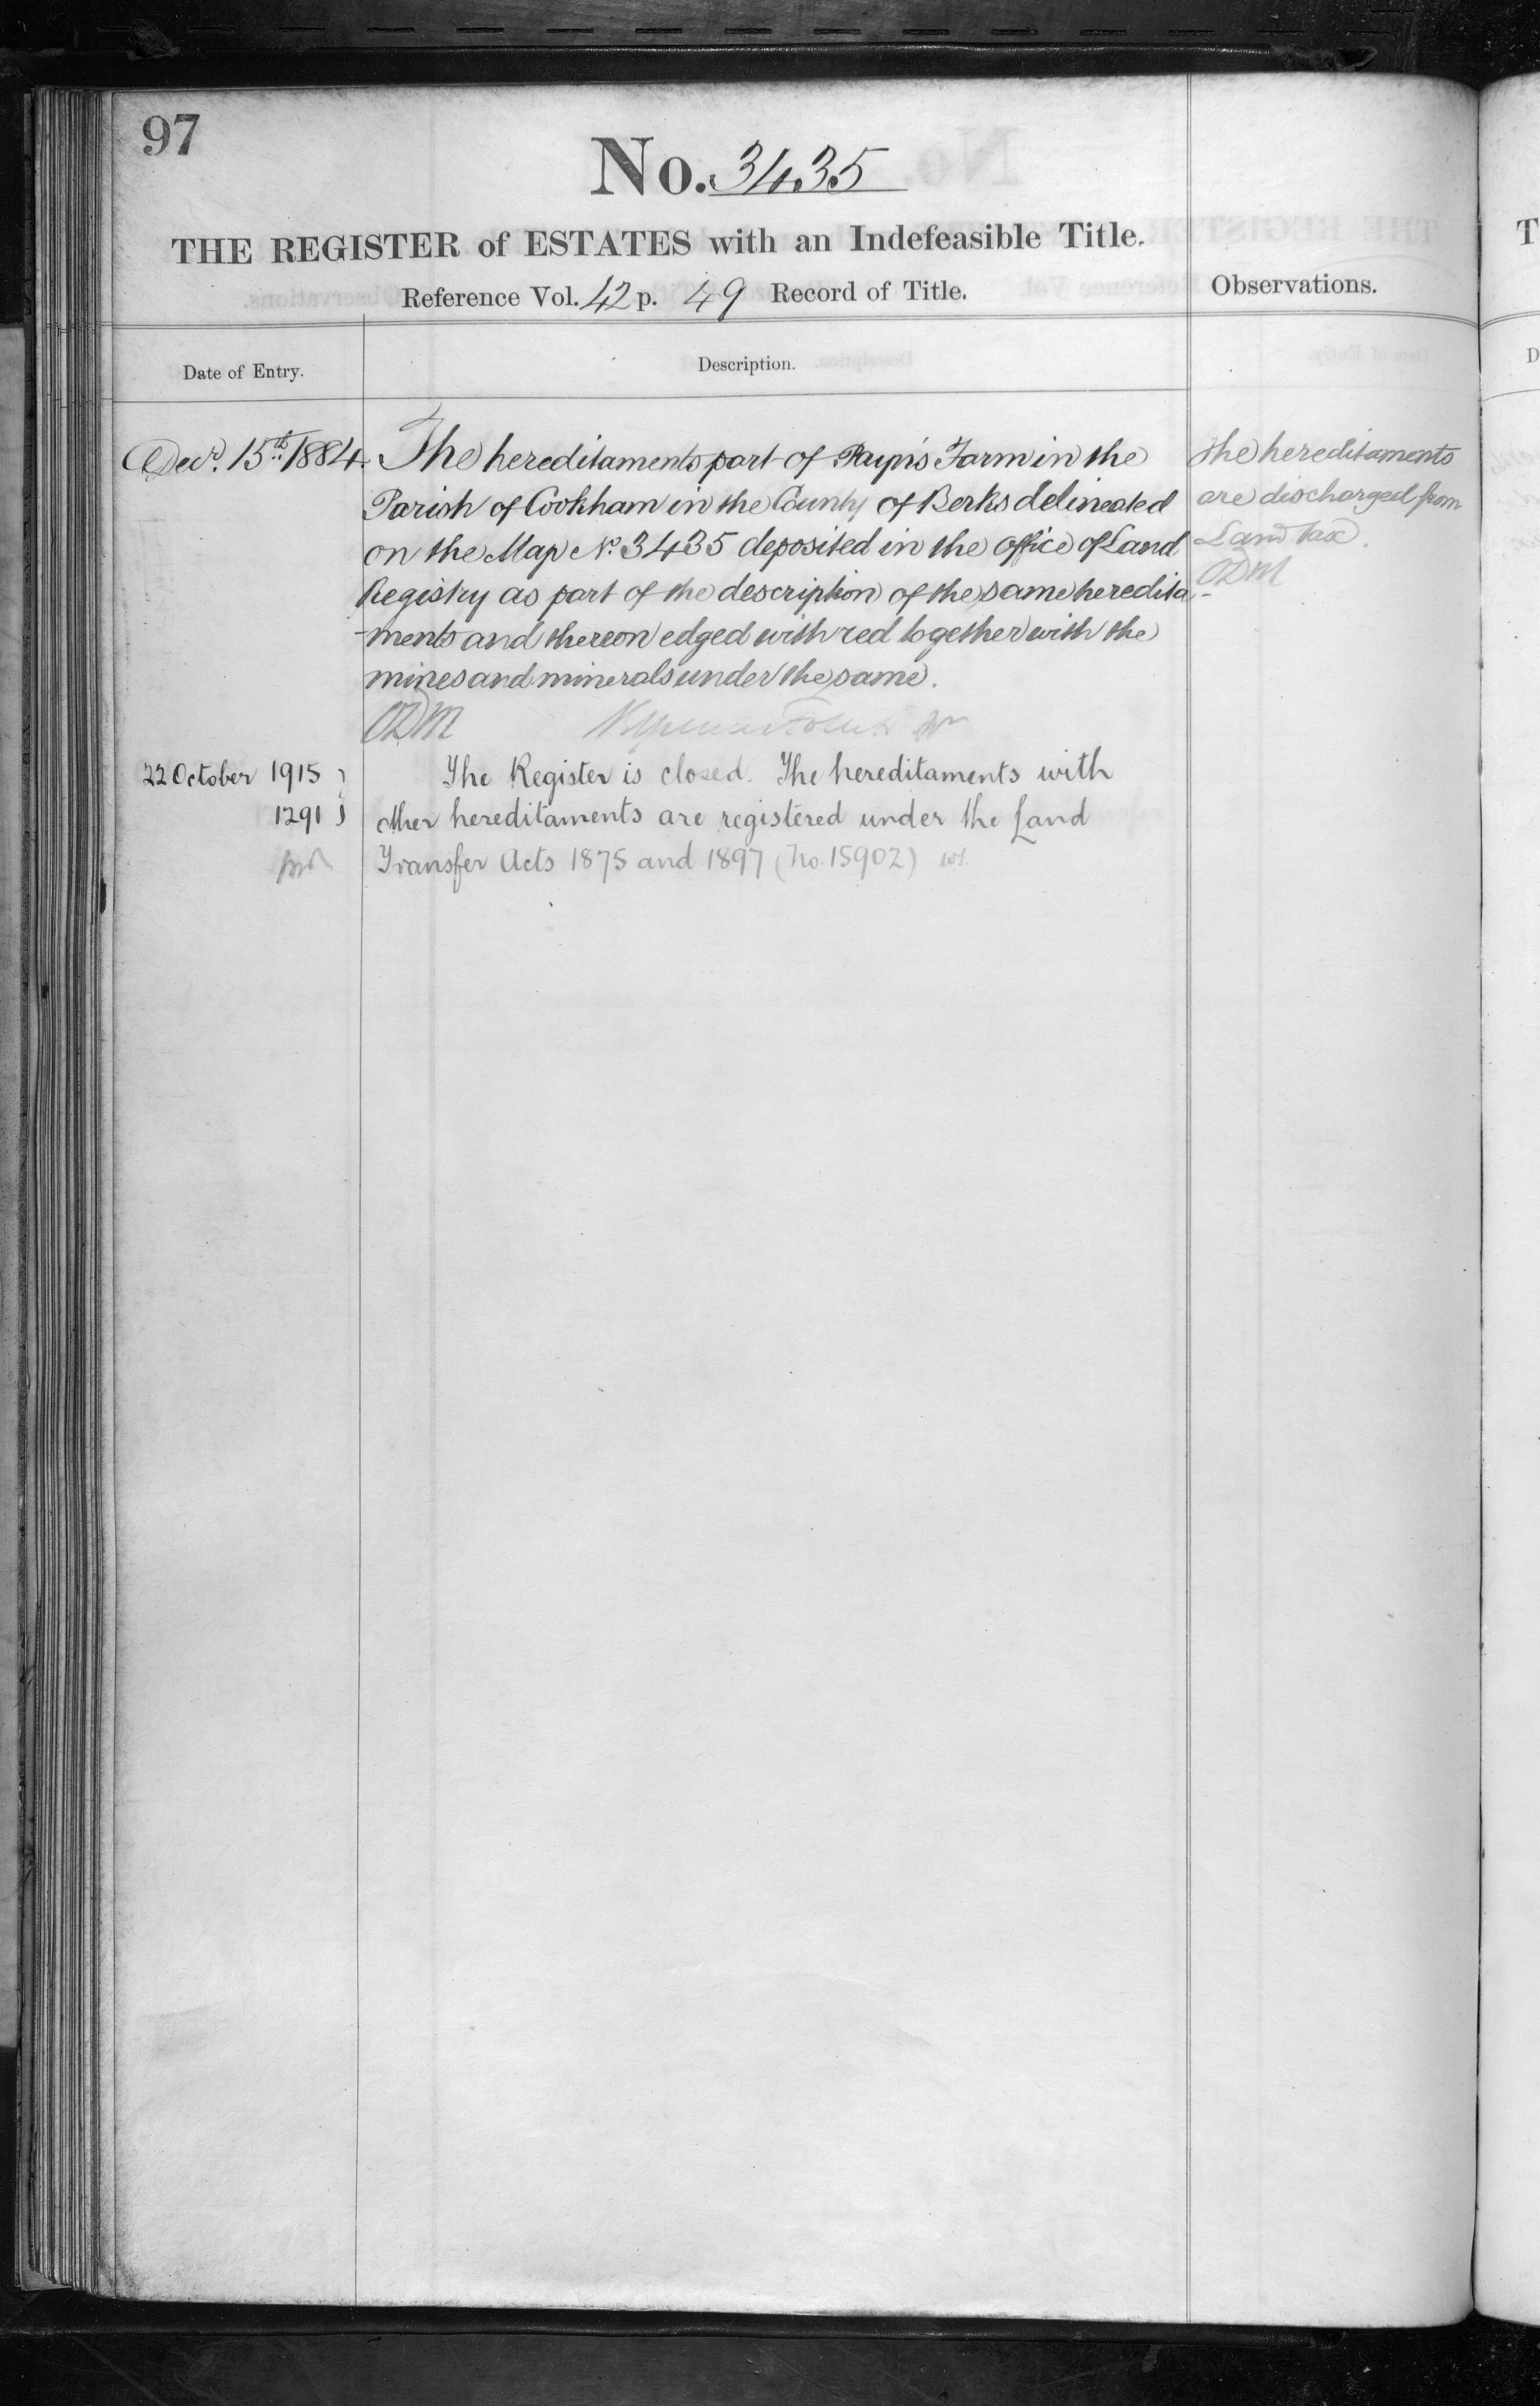 97
No. 3435
THE REGISTER of ESTATES with an Indefeasible Title.
Reference Vol. 42 p. 49 Record of Title.
Observations.
Date of Entry.
Description.
Decr. 15th 1884.
The hereditaments part of Farm in the
Parish of Cookham in the County of Berks delineated
on the Map No. 3435 deposited in the Office of Land
Registry as part of the description of the same heredita-
-ments and thereon edged with red together with the
mines and minerals under the same.
ODM
The hereditaments
are discharged from
Land tax.
ODM
22 October 1915
1291
The Register is closed. The hereditaments with
other hereditaments are registered under the Land
Transfer Acts 1875 and 1897 (No. 15902)